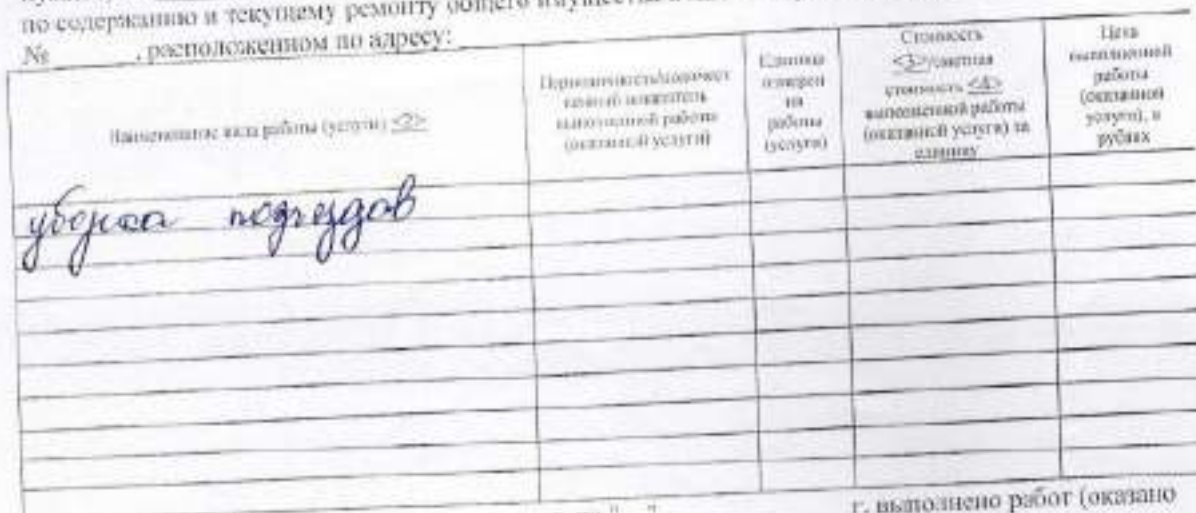 по содержанию и текущему ремонту общего имущества
№ , расположенном по адресу:
Наименование вида работы (услуги) <2>
Периодичность/количест
венный показатель
выполненной работы
(оказанной услуги)
Единица
измерен
ия
работы
(услуги)
Стоимость
<3>/сметная
стоимость <4>
выполненной работы
(оказанной услуги) за
единицу
Цена
выполненной
работы
(оказанной
услуги), в
рублях
уборка подъездов
" "
г. выполнено работ (оказано